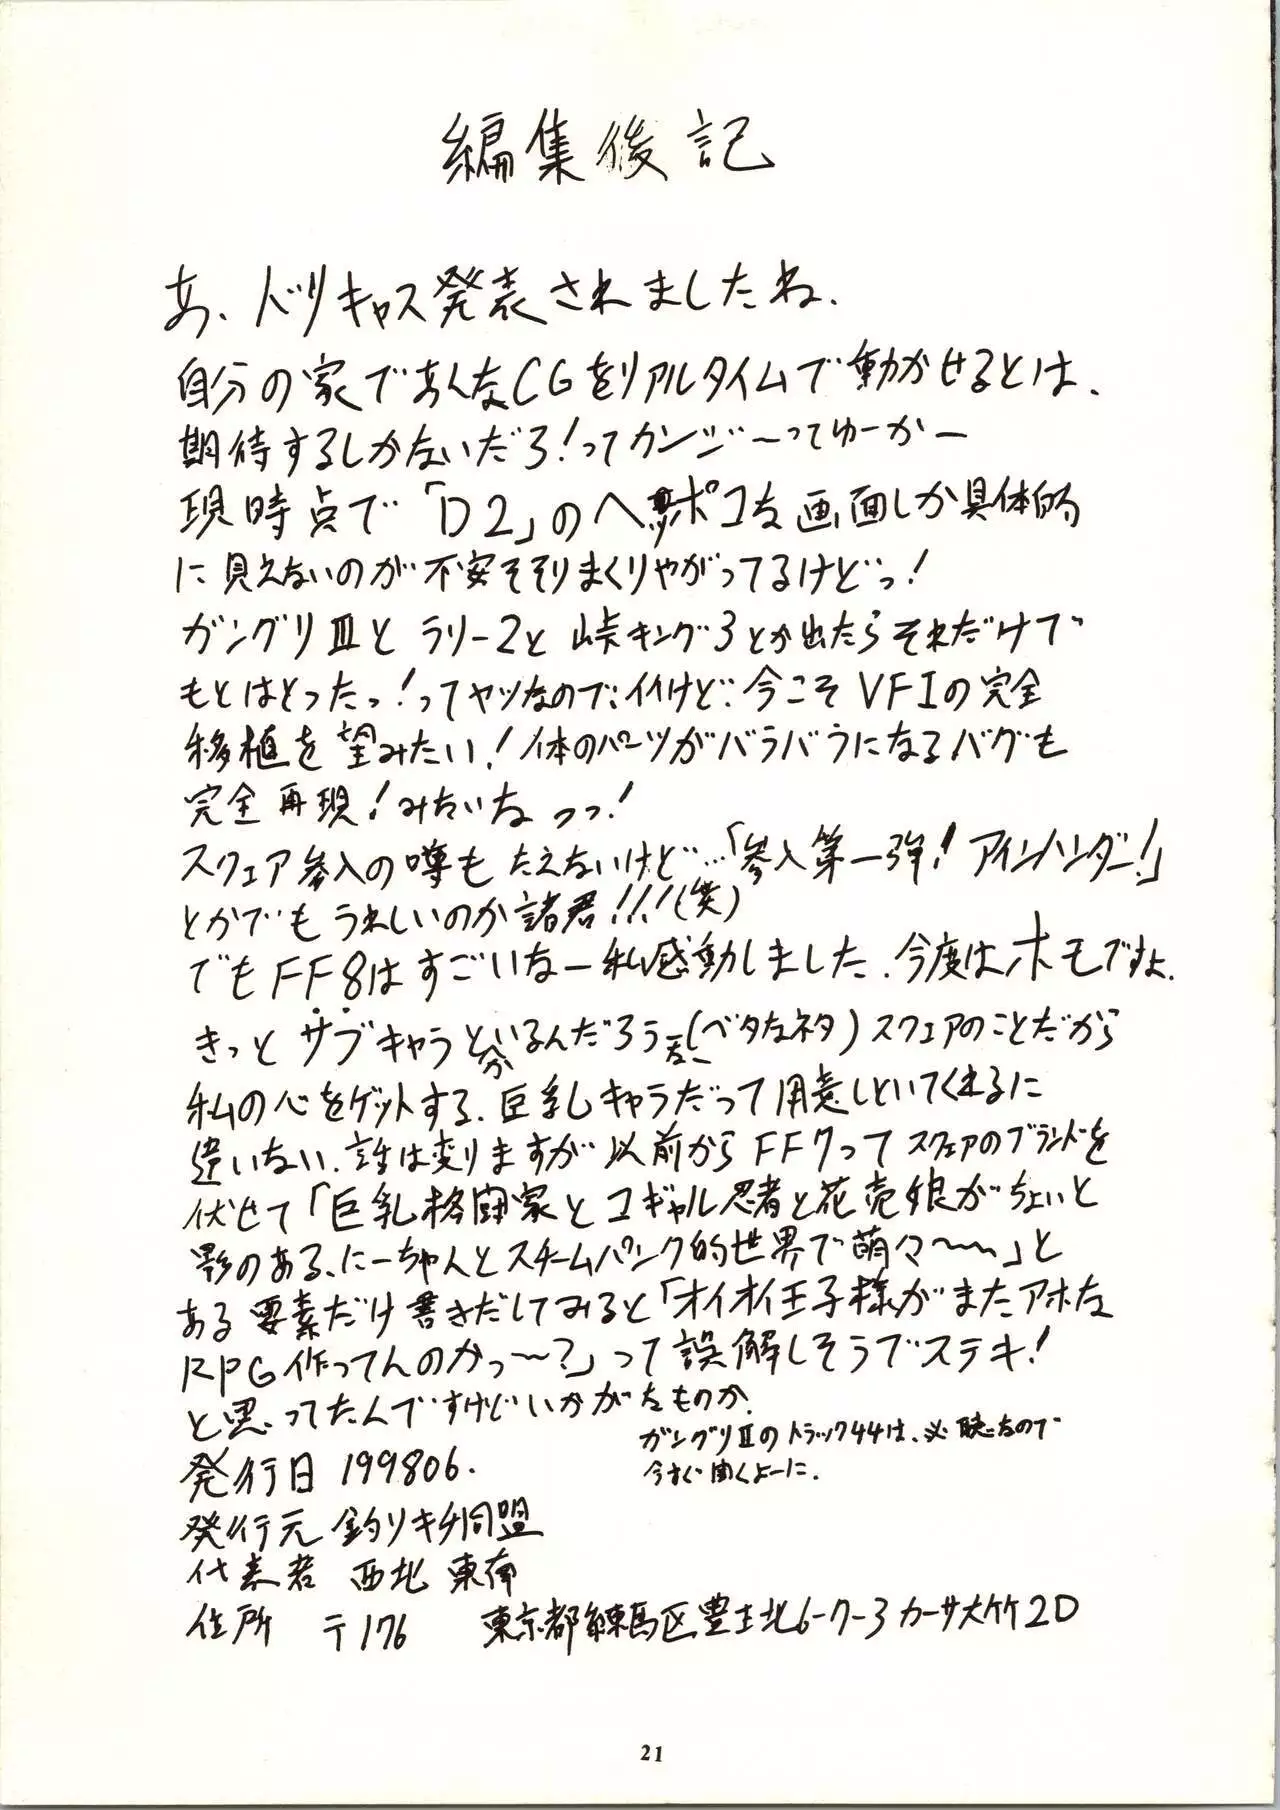 編集後記
あ、ドリキャス発表されましたね.
自分の家であんなCGをリアルタイムで動かせるとは、
期待するしかないだろ!ってカンジ〜ってゆーかー
現時点で「D2」のヘッポコな画面しか具体的
に見えないのが不安そそりまくりやがってるけどっ!
ガングリⅢとラリー2と峠キング3とか出たらそれだけで
もとはとったっ!ってヤツなので、イイけど、今こそVF1の完全
移植を望みたい!体のパーツがバラバラになるバグも
完全再現!みたいなっっ!
スクェア参入の噂もたえないけど…「参入第一弾!アインハンダー!」
とかでもうれしいのか諸君!!!(笑)
でもFF8はすごいなー私感動しました.今度はホモですよ.
きっとサブキャラとかいるんだろうなー(ベタなネタ)スクェアのことだから
私の心をゲットする、巨乳キャラだって用意しといてくれるに
違いない.話は変りますが以前からFF7ってスクェアのブランドを
伏せて「巨乳格闘家とコギャル忍者と花売娘がちょいと
影のある、にーちゃんとスチームパンク的世界で萌々〜〜」と
ある要素だけ書きだしてみると「オイオイ王子様がまたアホな
RPG作ってんのかっ〜?」って誤解しそうでステキ!
と思ってたんですけどいかがなものか.
ガングリⅡのトラック44は、必聴なので
今すぐ聞くよーに.
発行日 199806.
発行元 釣りキチ同盟
代表者 西北 東南
住所 〒176 東京都練馬区豊玉北6-7-3 カーサ大竹2D
21